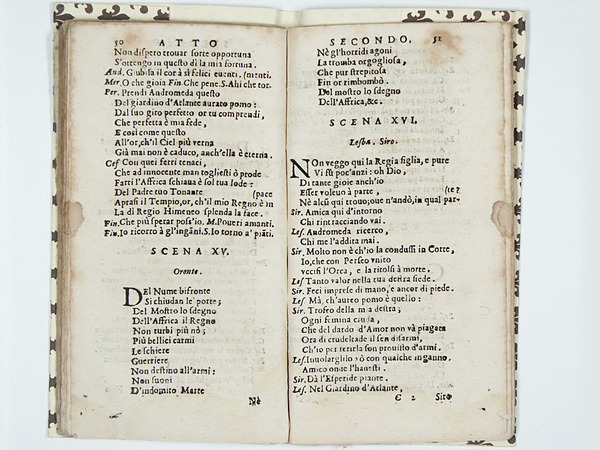 50 ATTO
Non dispero trouar sorte opportuna
S'ottengo in questo di la mia fortuna.
And. Giubila il cor à sì felici euenti. (menti.
Mer. O che gioia Fin. Che pene. S. Ahi che tor-
Per. Prendi Andromeda questo
Del giardino d'Atlante aurato pomo:
Dal suo giro perfetto or tu comprendi,
Che perfetta è mia fede,
E così come questo
All'or, ch'il Ciel più verna
Già mai non è caduco, anch'ella è eterna.
Cef Con quei ferri tenaci,
Che ad innocente man togliesti ò prode
Farti l'Affrica schiaua è sol tua lode:
Del Padre tuo Tonante (pace
Aprasi il Tempio, or, ch'il mio Regno è in
La di Regio Himeneo splenda la face.
Fin. Che più sperar poss'io. M. Poueri amanti.
Fin. Io ricorro à gl'ingãni. S. Io torno a' piãti.
SCENA XV.
Oronte.
DEl Nume bifronte
Si chiudan le porte;
Del Mostro lo sdegno
Dell'Affrica il Regno
Non turbi più nò;
Più bellici carmi
Le schiere
Guerriere
Non destino all'armi:
Non suoni
D'indomito Marte
Nè
SECONDO. 51
Nè gl'horridi agoni
La tromba orgogliosa,
Che pur strepitosa
Fin or rimbombò.
Del mostro lo sdegno
Dell'Affrica, &c.
SCENA XVI.
Lesba. Siro.
NOn veggo quì la Regia figlia, e pure
Vi fù poc'anzi: oh Dio,
Di tante gioie anch'io
Esser voleuo à parte, (te?
Nè alcũ qui trouo; oue n'andò, in qual par-
Sir. Amica quì d'intorno
Chi rintracciando vai.
Les. Andromeda ricerco,
Chi me l'addita mai.
Sir. Molto non è ch'io la condussi in Corte,
Io, che con Perseo vnito
vccisi l'Orca, e la ritolsi à morte.
Les Tanto valor nella tua destra siede.
Sir. Feci imprese di mano, e ancor di piede.
Les Mà, ch'aureo pomo è quello:
Sir. Trofeo della mia destra;
Ogni femina cruda,
Che del dardo d'Amor non và piagata
Ora di crudeltade il sen disarmi,
Ch'io per ferirla son prouisto d'armi.
Les. Inuolarglilo vò con qualche inganno.
Amico onde l'hauesti.
Sir. Dà l'Esperide piante.
Les. Nel Giardino d'Atlante,
C 2 Siro